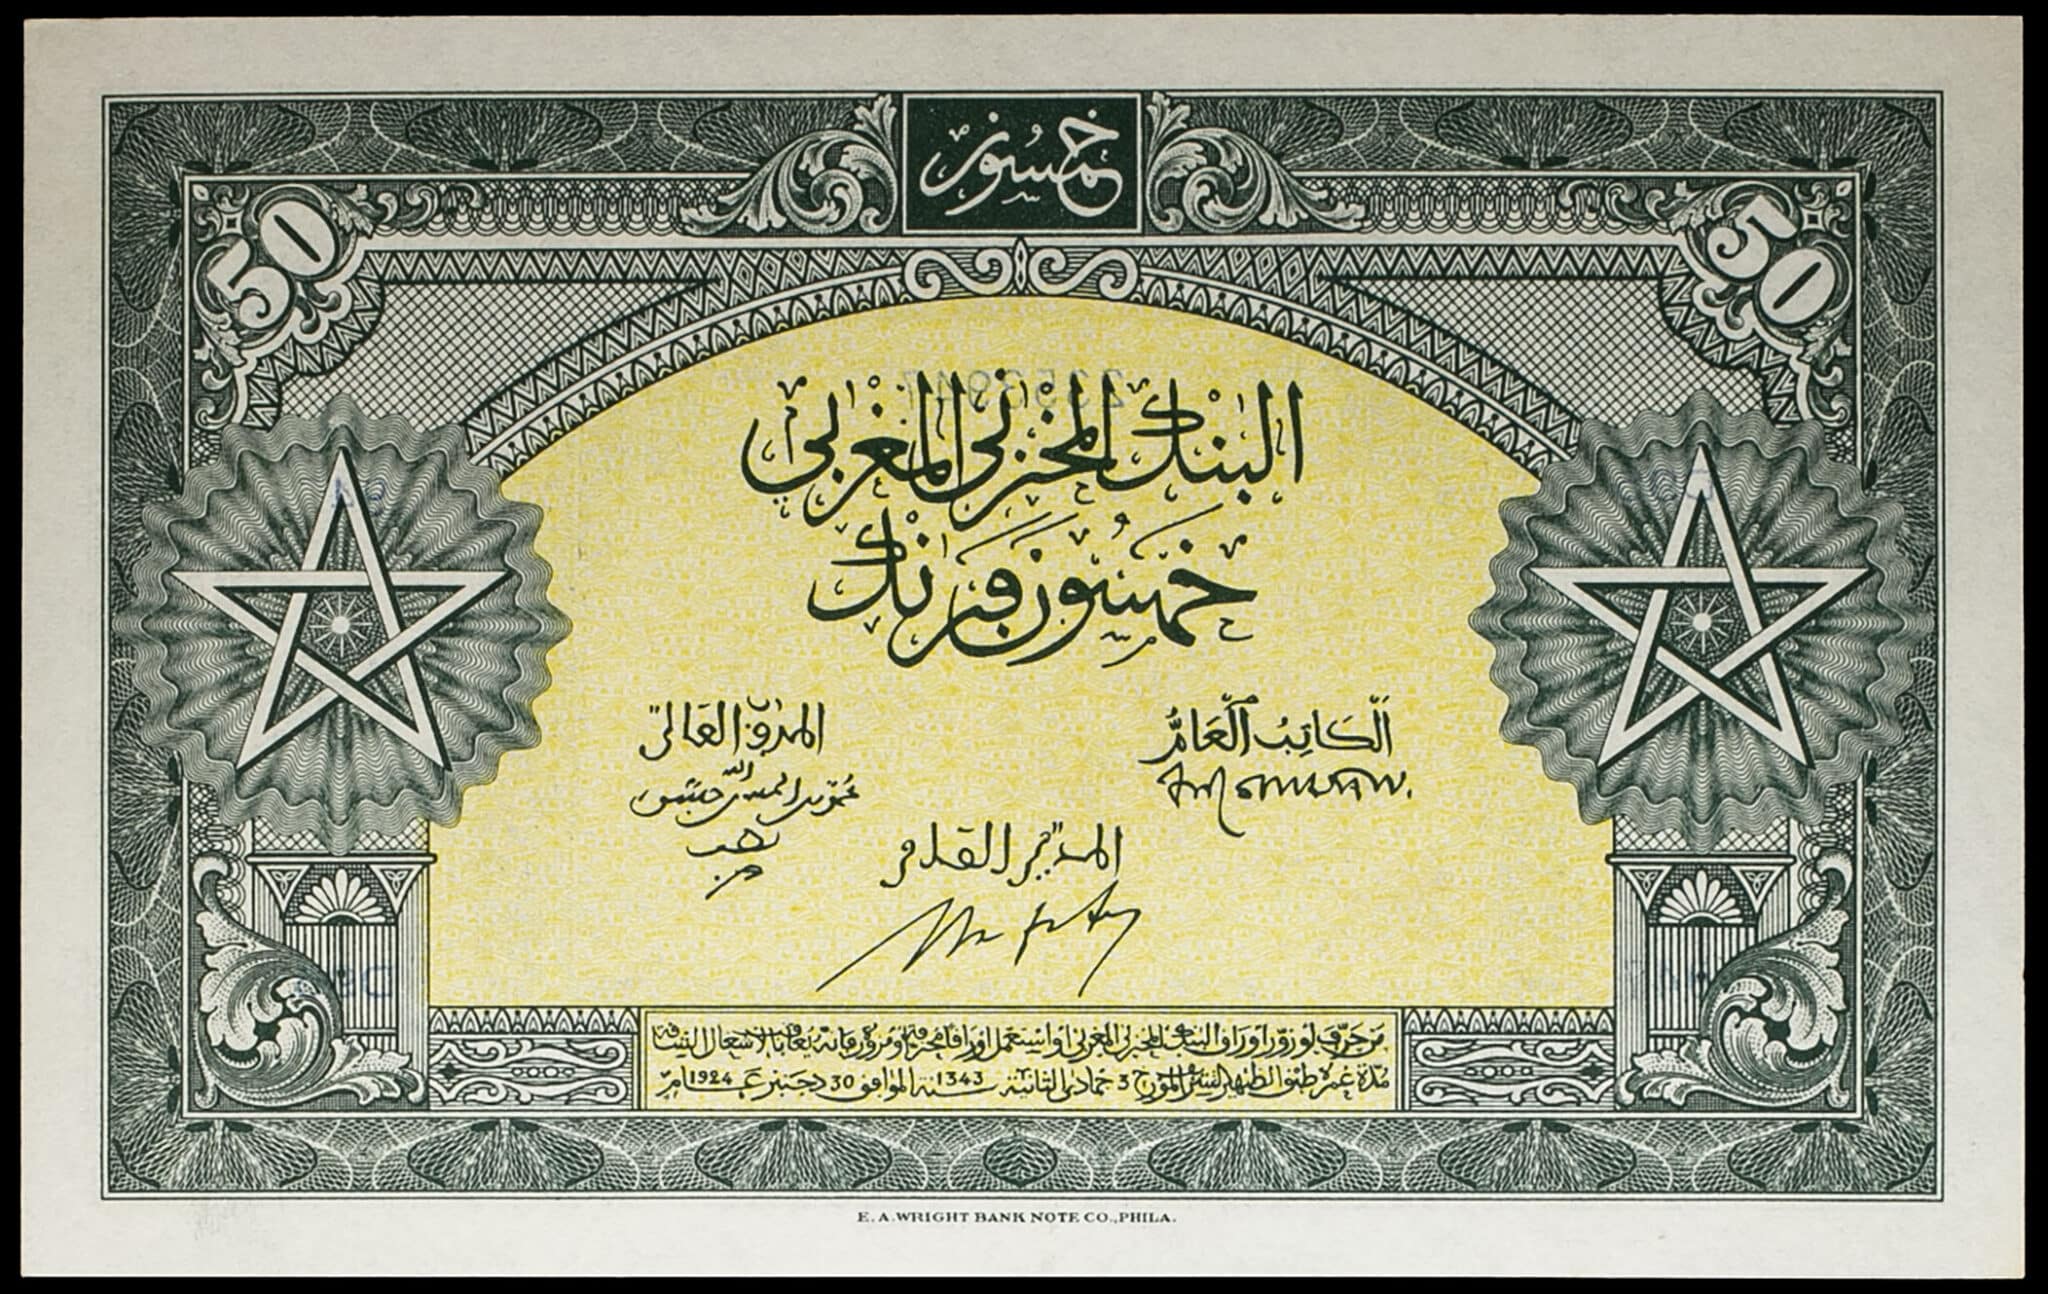 خمسون
50
50
البنك المخزني المغربي
خمسون فرنك
الكَاتِبُ العَامُّ
المندوب العالي
المدير القادم
من حرّف او زوّر اوراق البنك المخزني المغربي او استعمل اوراقا محرفة او مزورة فإنه يعاقب بالاشغال الشاقة
مدة عمره طبق الظهير الشريف المؤرخ 3 جمادى الثانية سنة 1343 الموافق 30 دجنبر عام 1924
E. A. WRIGHT BANK NOTE CO., PHILA.